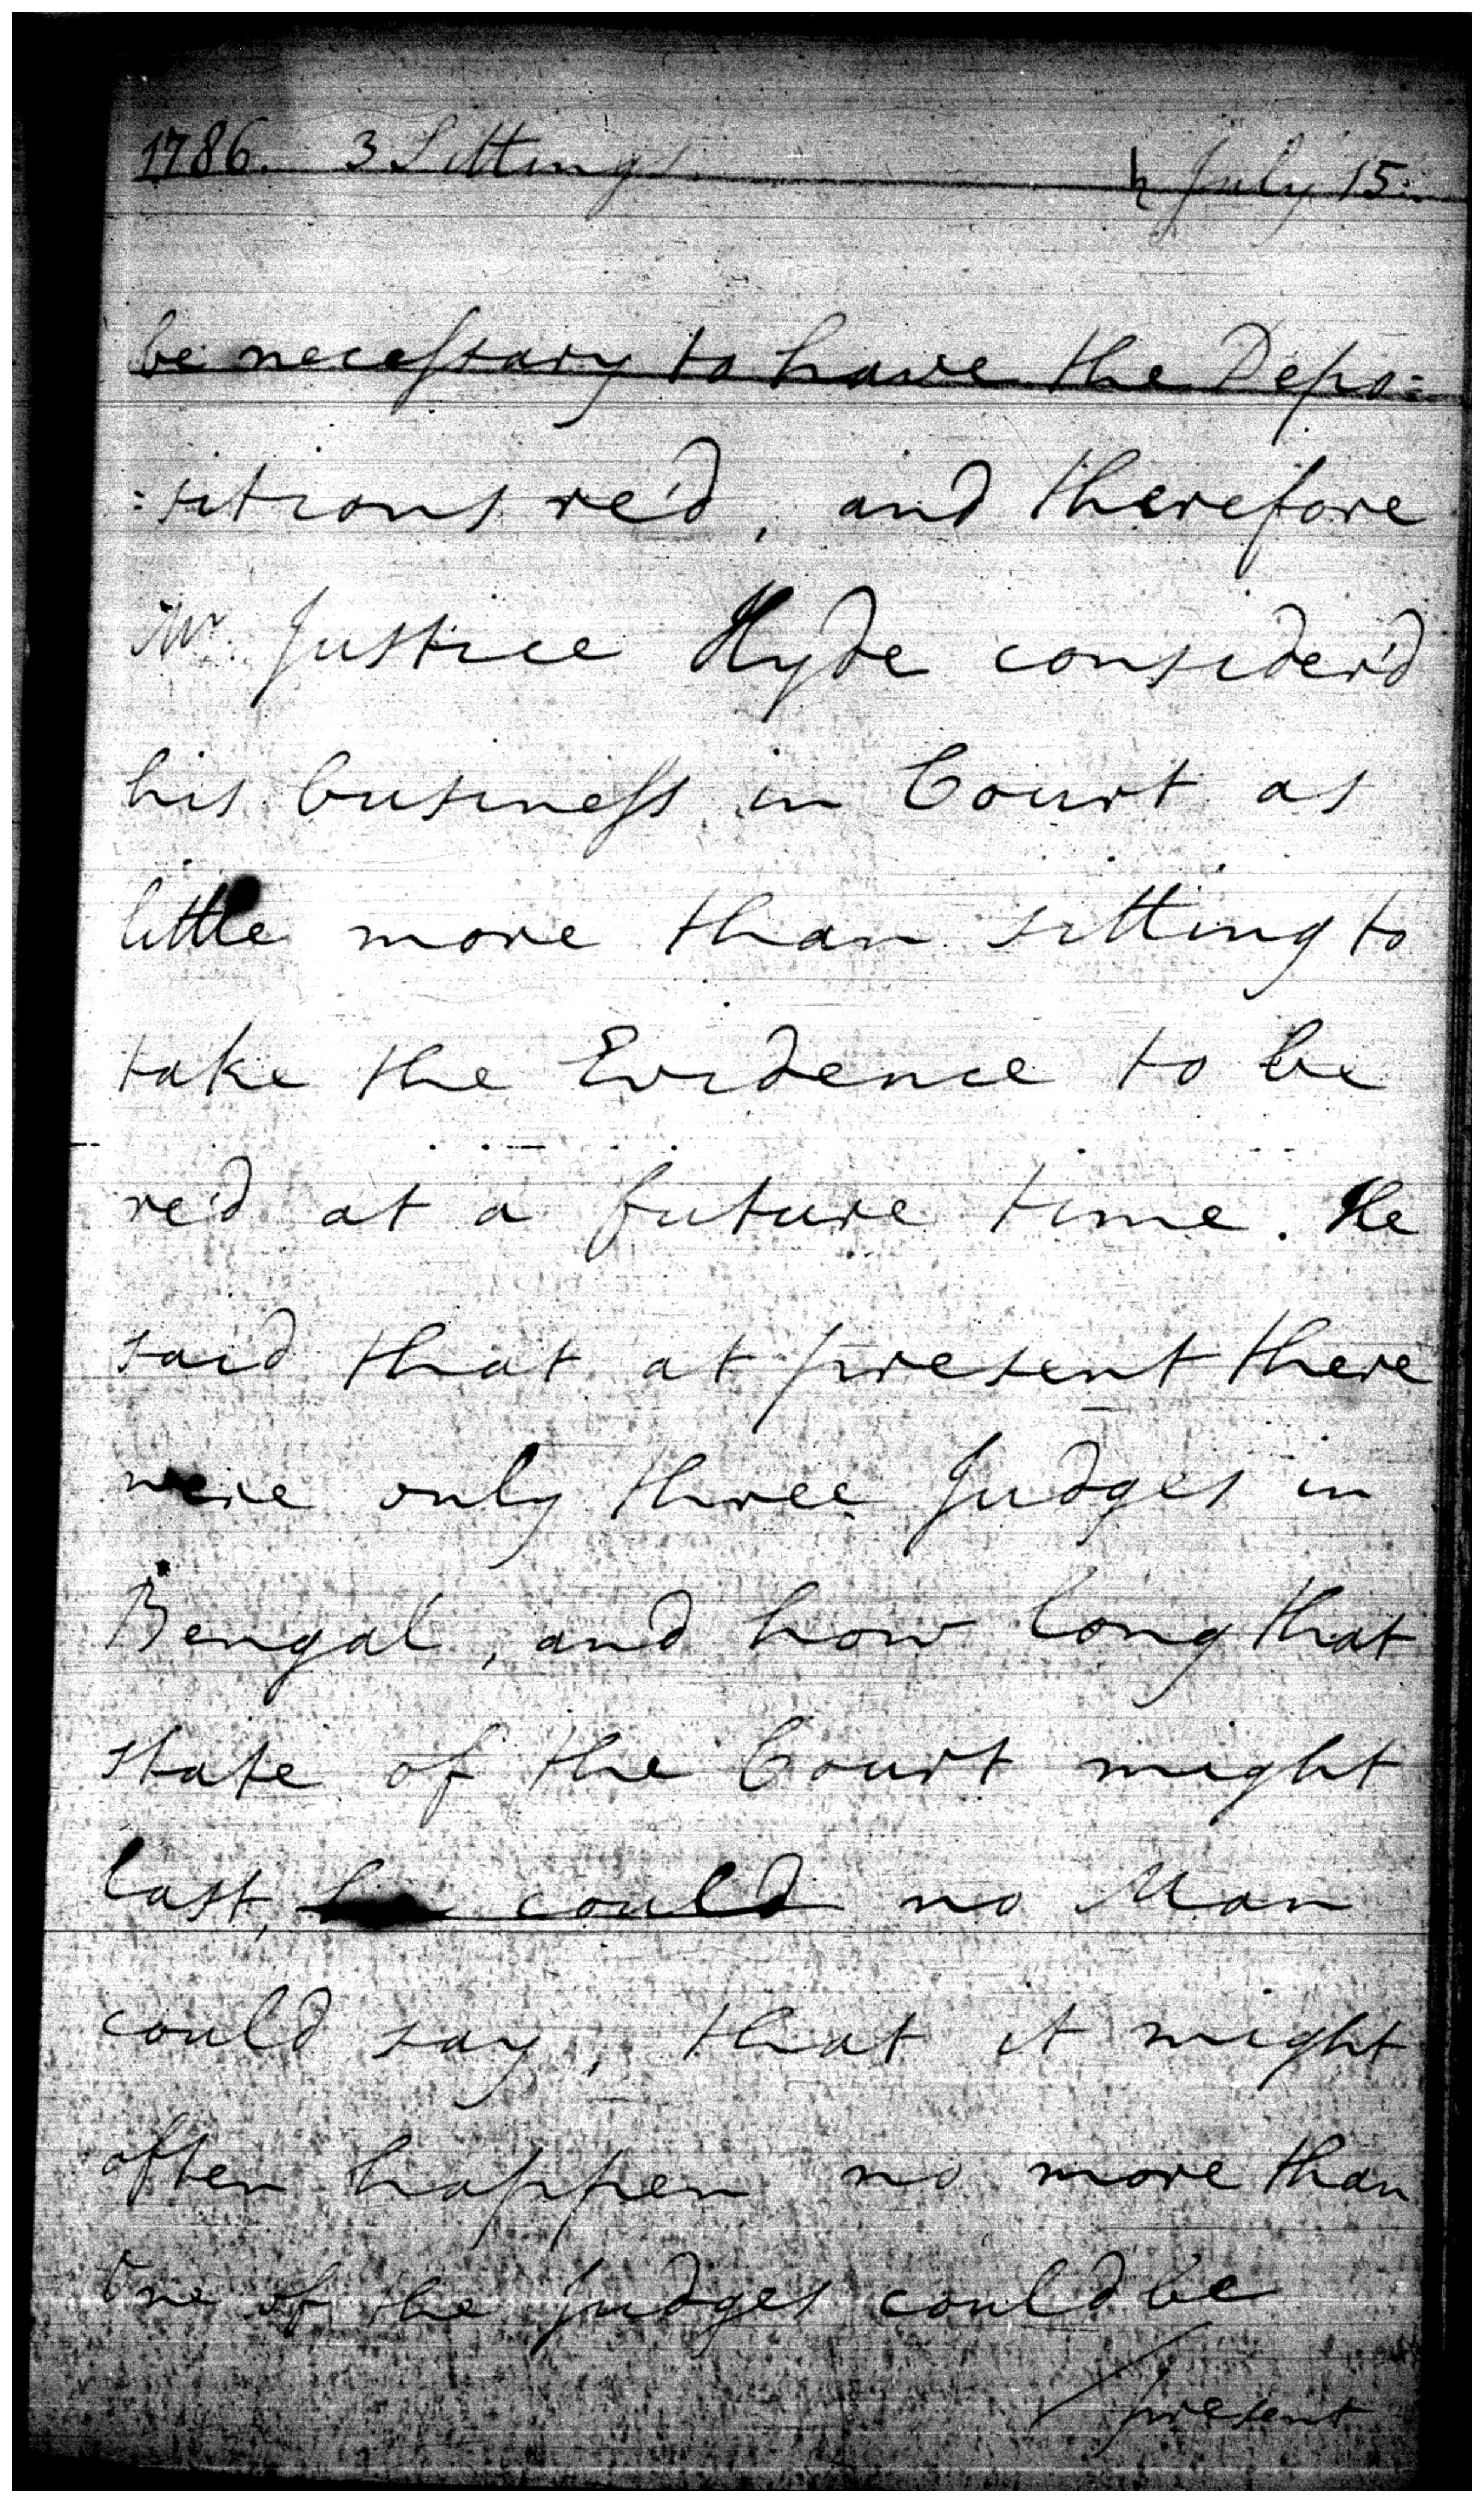 1786. 3 Sittings ♄ July 15.
be necessary to have the Depo=
=sitions re'd, and therefore
Mr. Justice Hyde consider'd
his business in Court as
little more than sitting to
take the Evidence to be
re'd at a future time. He
said that at present there
were only three Judges in
Bengal, and how long that
state of the Court might
last, could no Man
could say, that it might
often happen no more than
One of the Judges could be
present